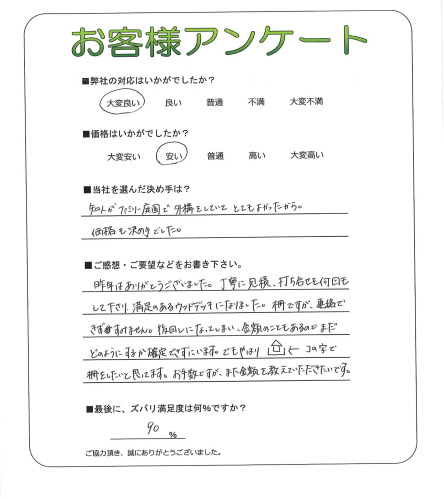 お客様アンケート
■弊社の対応はいかがでしたか?
大変良い 良い 普通 不満 大変不満
■価格はいかがでしたか?
大変安い 安い 普通 高い 大変高い
■当社を選んだ決め手は?
知人がファミリー庭園で外構をしていてとてもよかったから。
価格も決め手でした。
■ご感想・ご要望などをお書き下さい。
昨年はありがとうございました。丁寧に見積、打ち合せも何回も
して下さり、満足のあるウッドデッキになりました。柵ですが、連絡で
きずすみません。後回しになってしまい、金額のこともあるのでまだ
どのようにするか確定できずにいます。でもやはり ← コの字で
柵をしたいと思ってます。お手数ですが、また金額を教えていただきたいです。
■最後に、ズバリ満足度は何%ですか?
90 %
ご協力頂き、誠にありがとうございました。